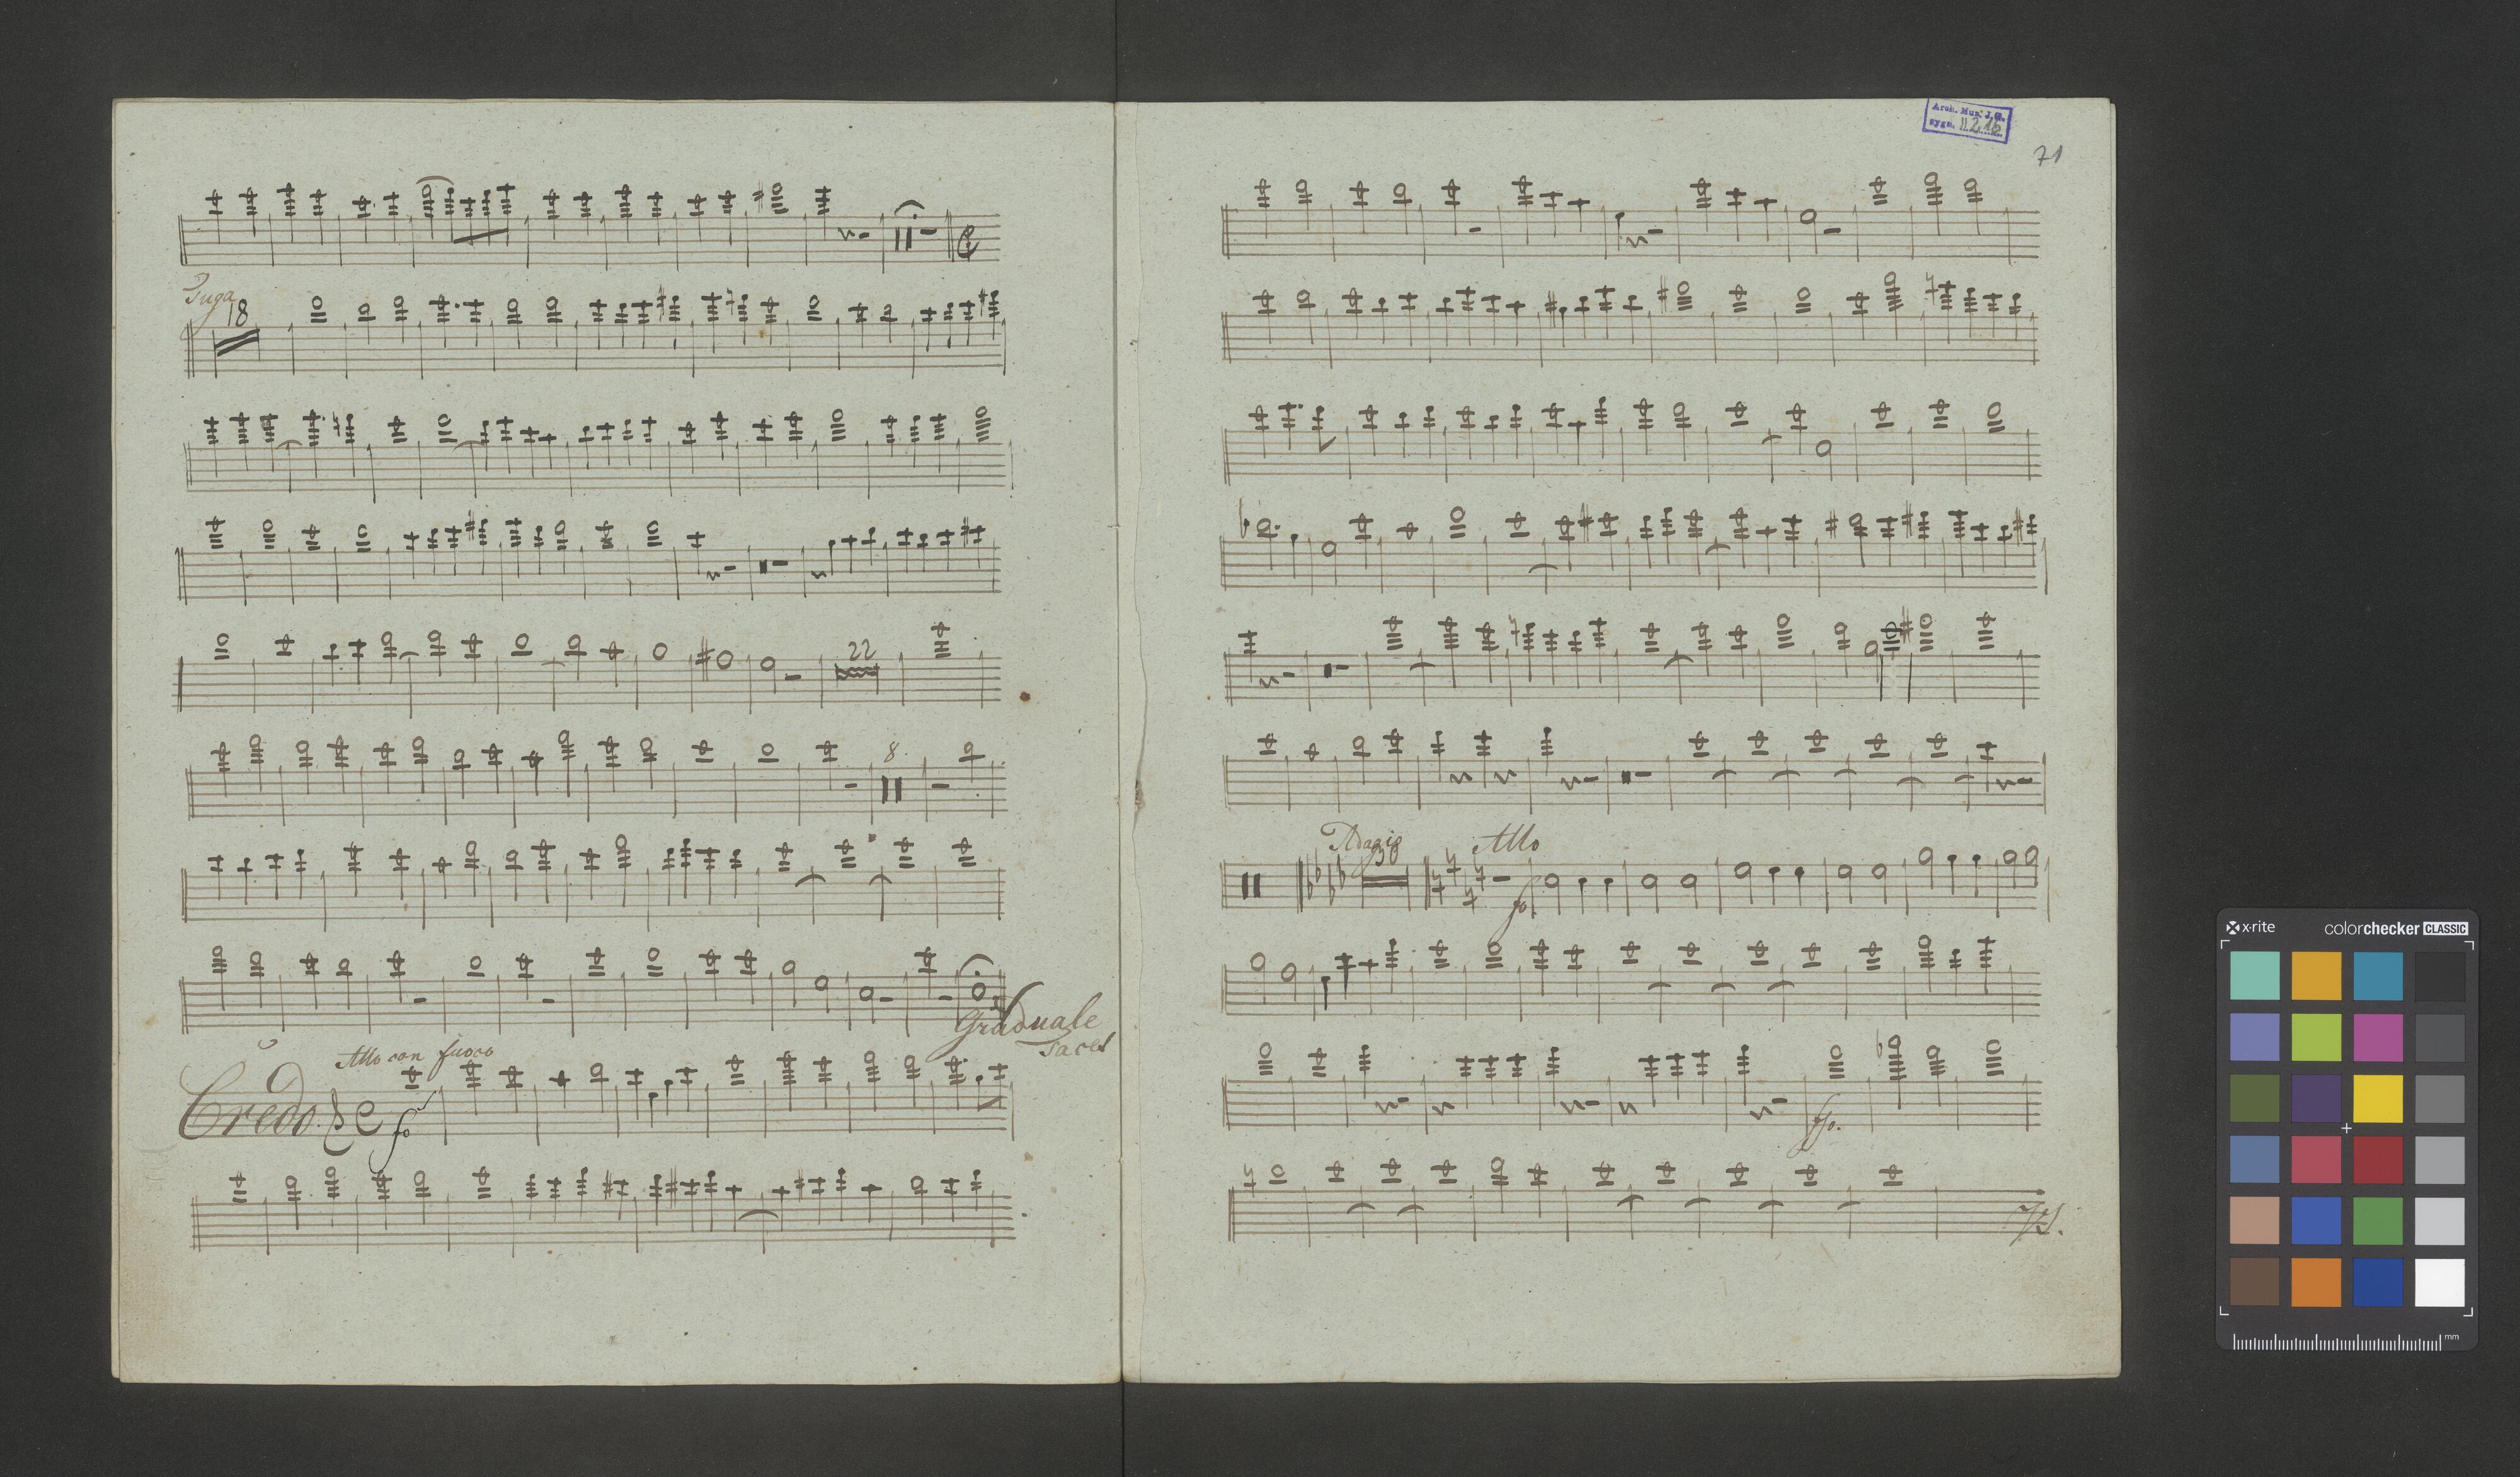 Fuga
18
22
8.
Graduale
tacet
Allo con fuoco
Credo.
fo
Arch. Muz. J.G.
sygn. II.2.16
71
Adagio
Allo
fo.
ffo.
VS.
x-rite
colorchecker CLASSIC
mm